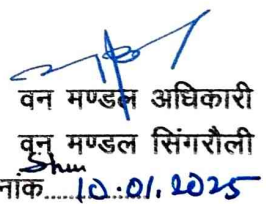 वन मण्डल अधिकारी
वन मण्डल सिंगरौली
नांक.....10.01.2025